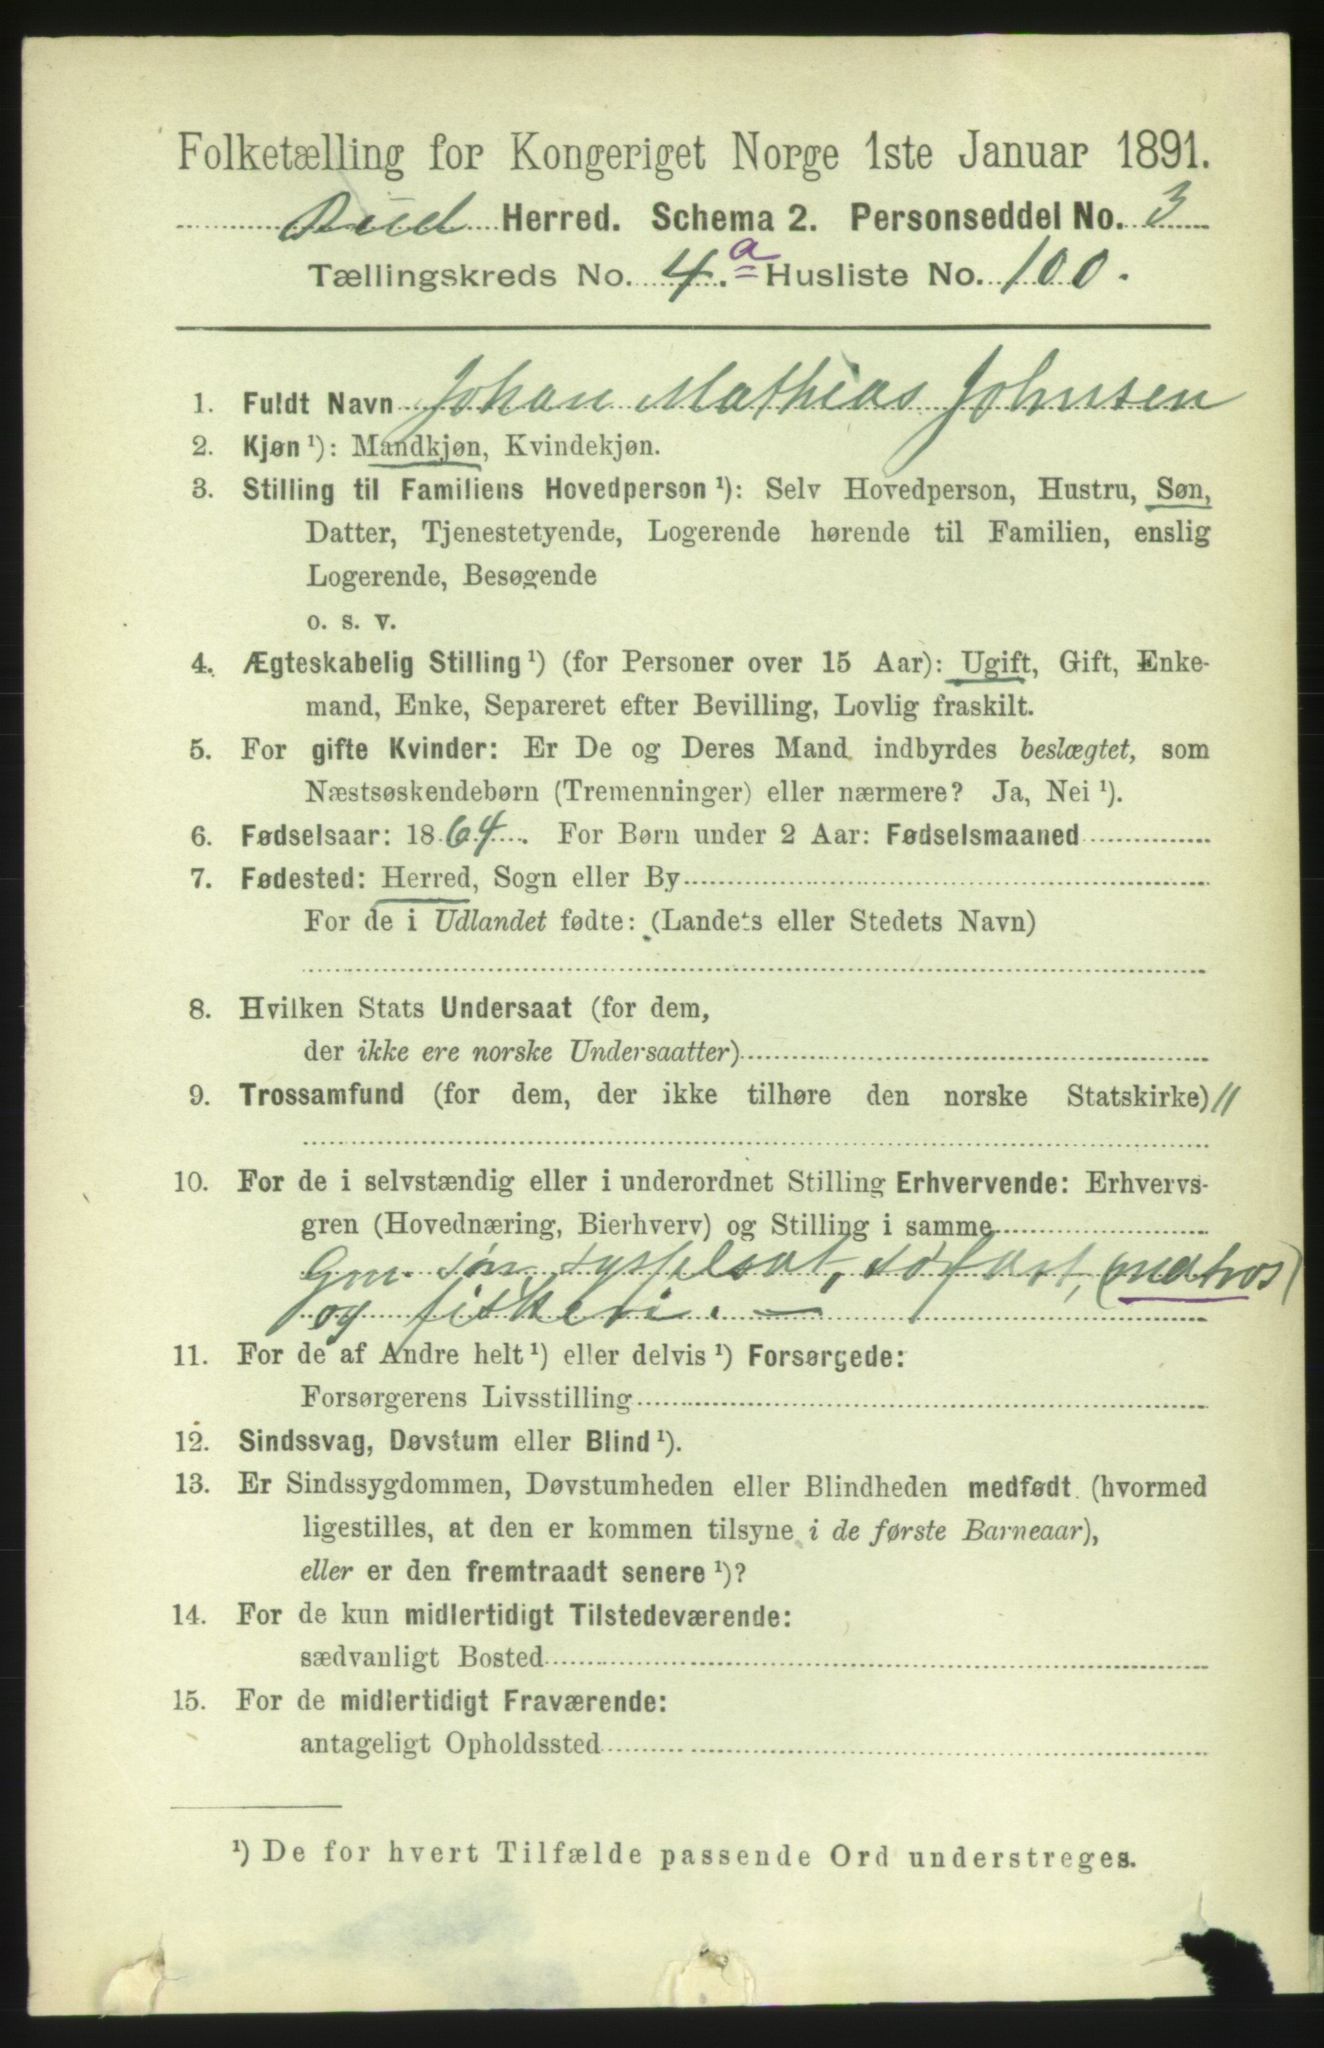 Folketælling for Kongeriget Norge 1ste Januar 1891.
Bud Herred. Schema 2. Personseddel No. 3
Tællingskreds No. 4.a Husliste No. 100.
1. Fuldt Navn Johan Mathias Johnsen
2. Kjøn¹): Mandkjøn, Kvindekjøn.
3. Stilling til Familiens Hovedperson¹): Selv Hovedperson, Hustru, Søn,
Datter, Tjenestetyende, Logerende hørende til Familien, enslig
Logerende, Besøgende
o. s. v.
4. Ægteskabelig Stilling¹) (for Personer over 15 Aar): Ugift, Gift, Enke-
mand, Enke, Separeret efter Bevilling, Lovlig fraskilt.
5. For gifte Kvinder: Er De og Deres Mand indbyrdes beslægtet, som
Næstsøskendebørn (Tremenninger) eller nærmere? Ja, Nei¹).
6. Fødselsaar: 1864. For Børn under 2 Aar: Fødselsmaaned
7. Fødested: Herred, Sogn eller By
For de i Udlandet fødte: (Landets eller Stedets Navn)
8. Hvilken Stats Undersaat (for dem,
der ikke ere norske Undersaatter)
9. Trossamfund (for dem, der ikke tilhøre den norske Statskirke) //
10. For de i selvstændig eller i underordnet Stilling Erhvervende: Erhvervs-
gren (Hovednæring, Bierhverv) og Stilling i samme
Gm. søn sysselsat, søfart, (matros)
og fiskeri. —
11. For de af Andre helt¹) eller delvis¹) Forsørgede:
Forsørgerens Livsstilling
12. Sindssvag, Døvstum eller Blind¹).
13. Er Sindssygdommen, Døvstumheden eller Blindheden medfødt (hvormed
ligestilles, at den er kommen tilsyne i de første Barneaar),
eller er den fremtraadt senere¹)?
14. For de kun midlertidigt Tilstedeværende:
sædvanligt Bosted
15. For de midlertidigt Fraværende:
antageligt Opholdssted
¹) De for hvert Tilfælde passende Ord understreges.